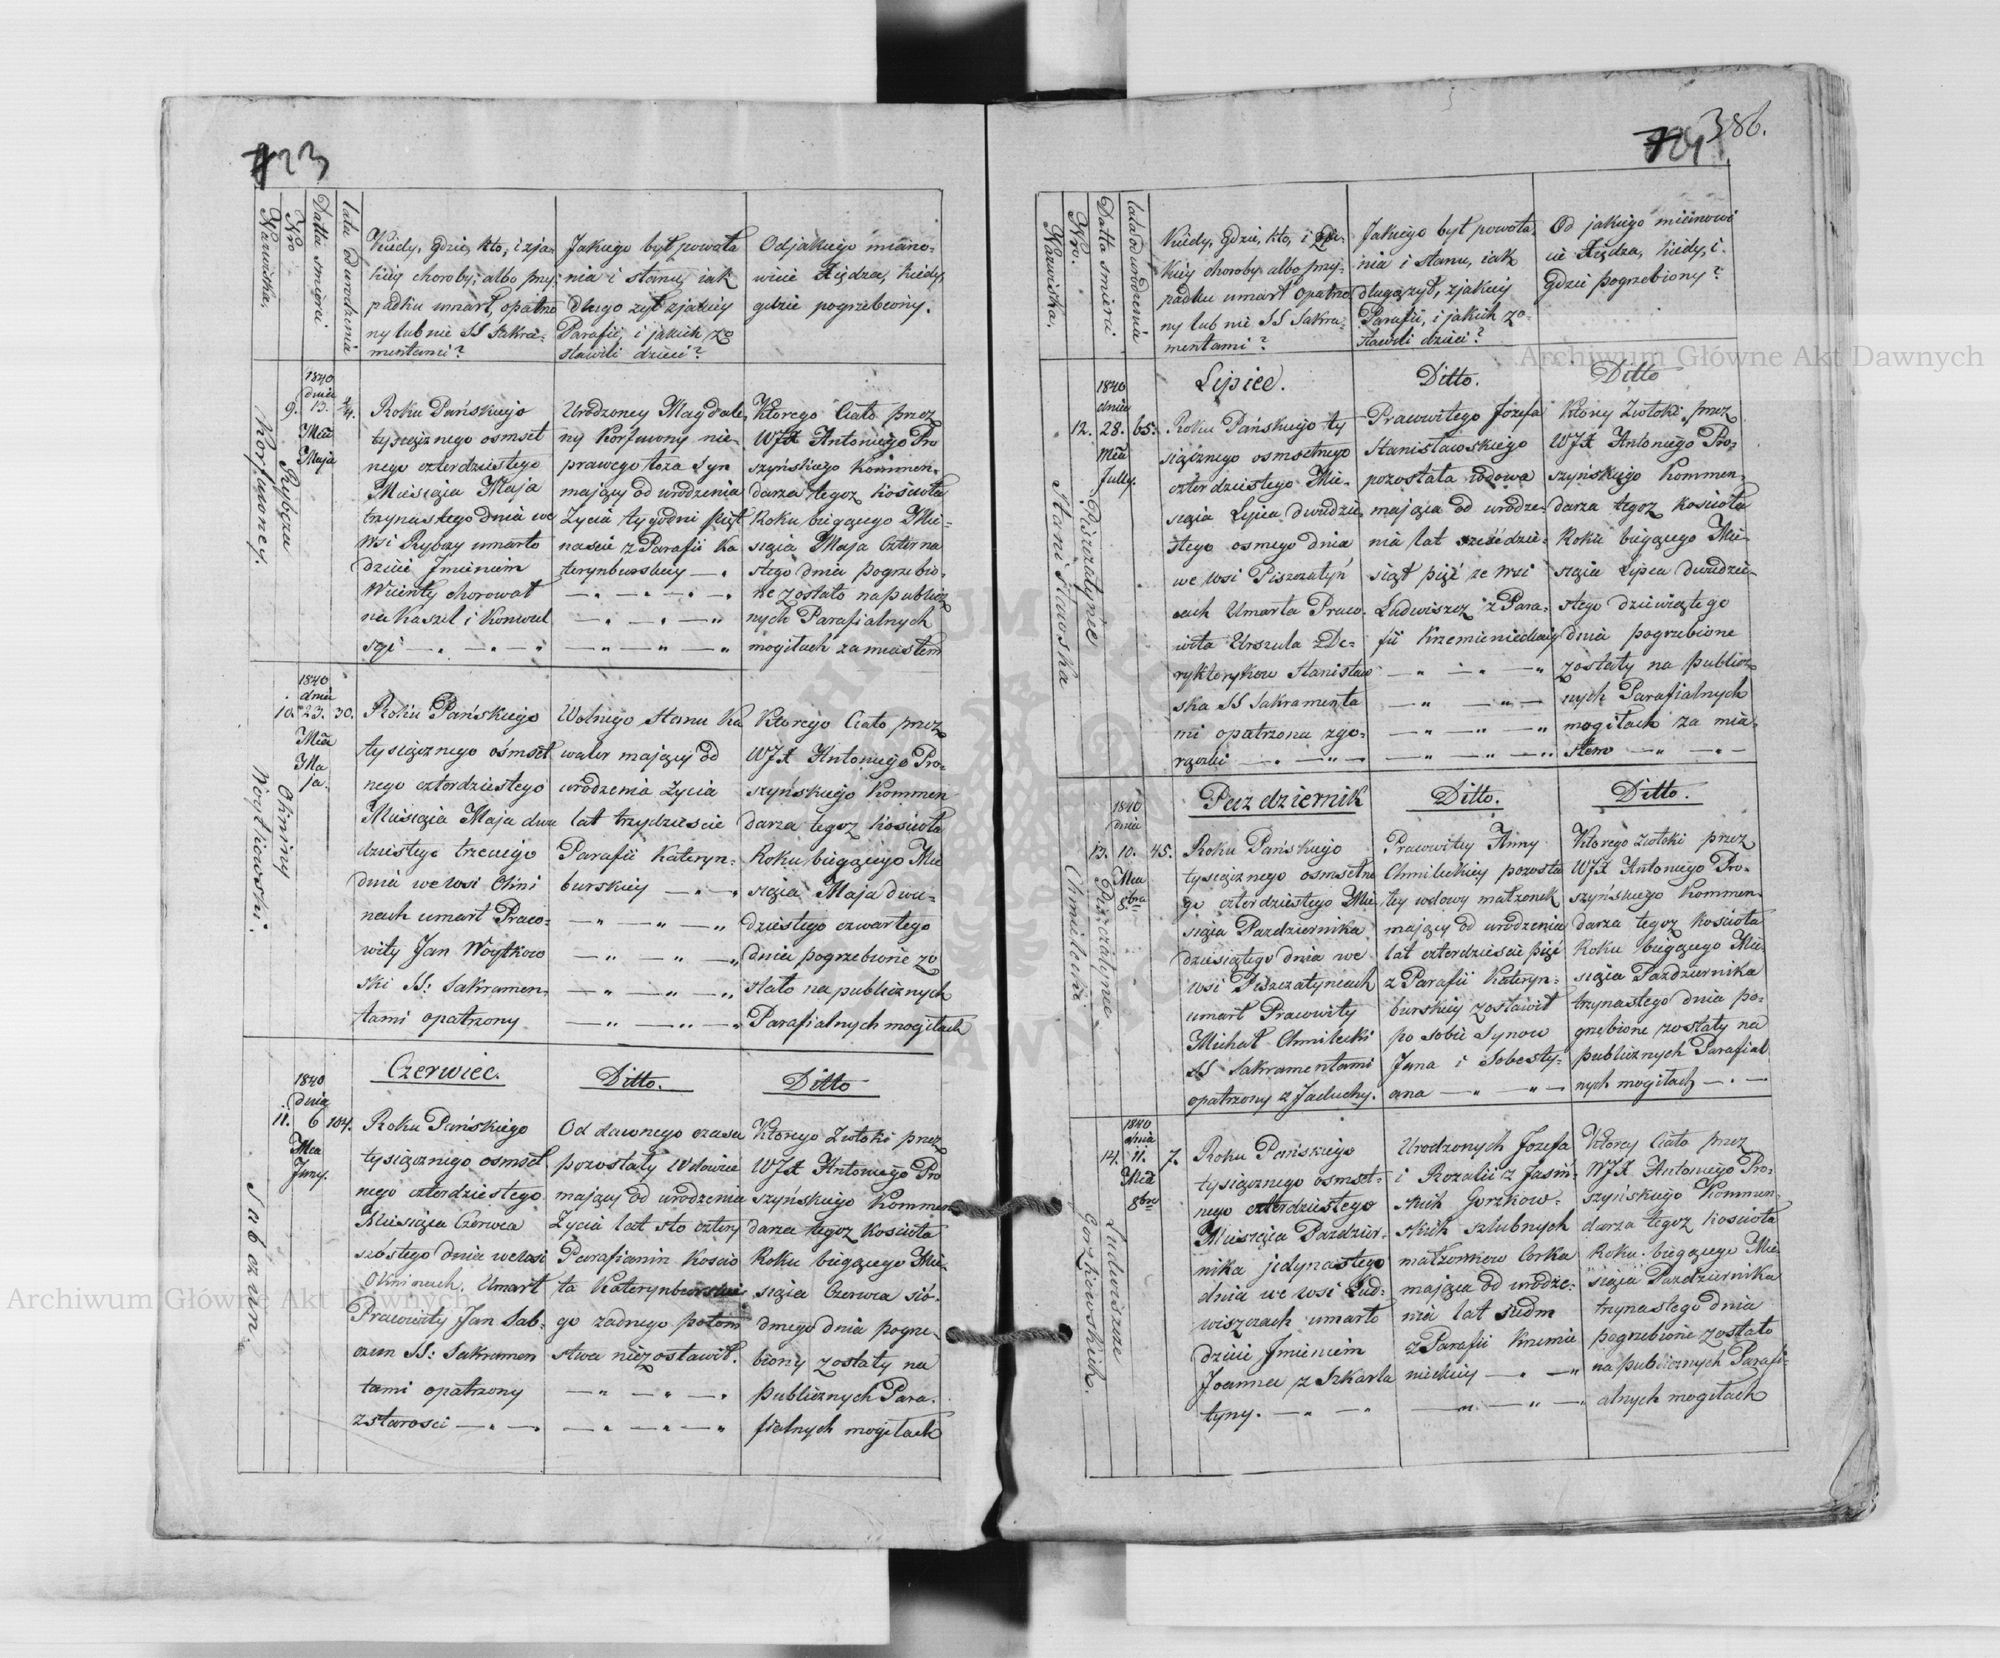 723
Nazwiska.
Nro
Datta śmierci
lata od urodzenia
Kiedy, gdzie, kto, i zja-
kiey choroby, albo przy-
padku umarł, opatrzo
ny lub nie SS Sakra-
mentami?
Jakiego był powoła
nia i stanu, iak
długo żył zjakiey
Parafii, i jakich zo
stawił dzieci?
Od jakiego miano-
wicie Xiędza, kiedy,
gdzie pogrzebiony.
Korfuwoney.
Rybcza
9.
1840
dnia
13.
Mca
Maja
Roku Pańskiego
tysiącznego osmset
nego czterdziestego
Miesiąca Maja
trzynastego dnia we
wsi Rybczy umarło
dziecie Imieniem
Wicenty chorował
na Kaszel i Konwul
sye
Urodzoney Magdale
ny Korfuwony nie-
prawego łoża Syn
maiący od urodzenia
Życia tygodni pięt
nascie z Parafii Ka
terynburskiey
Którego Ciało przez
WJX Antoniego Pro
szyńskiego Kommen-
darza tegoz Kościoła
Roku biegącego Mie-
siąca Maja Czterna
stego dnia pogrzebio-
ne zostało na publicz
nych Parafialnych
mogiłach za miastem
Woytkowski.
Okniny
10.
1840
dnia
23.
Mca
Ma
ja.
30.
Roku Pańskiego
tysiącznego osmset
nego czterdziestego
Miesiąca Maja dwu
dziestego trzeciego
dnia we wsi Okni
nach umarł Praco-
wity Jan Woytkow
ski SS: Sakramen
tami opatrzony
Wolnego stanu Ka
waler maiący od
urodzenia Życia
lat trzydziescie
Parafii Kateryn-
burskiey
Którego Ciało przez
WJX Antoniego Pro-
szyńskiego Kommen
darza tegoz Kościoła
Roku biegącego Mie
siąca Maja dwu-
dziestego czwartego
dnia pogrzebione zo
stało na publicznych
Parafialnych mogiłach
Czerwiec.
Ditto.
Ditto
Sabczun.
11.
1840
dnia
6
Mca
Juny.
104.
Roku Pańskiego
tysiącznego osmset
nego czterdziestego
Miesiąca Czerwca
szóstego dnia we wsi
Okninach. Umarł
Pracowity Jan Sab-
czun SS: Sakramen
tami opatrzony
z starosci
Od dawnego czasu
pozostały Wdowiec
maiący od urodzenia
Życia lat sto cztery
Parafianin Koscio
ła Katerynburskie
go żadnego potom
stwa niezostawił.
Którego Zwłoki przez
WJX Antoniego Pro
szyńskiego Kommen
darza tegoz Kościoła
Roku biegącego Mie-
siąca Czerwca sió-
dmego dnia pogrze-
biony zostały na
publicznych Para-
fialnych mogiłach
386.
Nazwiska.
Nro.
Datta śmierci
lata od urodzenia
Kiedy, gdzie, kto, i zja-
kiey choroby albo przy-
padku umarł opatrzo
ny lub nie SS Sakra-
mentami?
Jakiego był powoła
nia i stanu, iak
długo żył, zjakiey
Parafii, i jakich zo-
stawił dzieci?
Od jakiego mianowi
cie Xiędza, kiedy, i
Gdzie pogrzebiony?
Lipiec.
Ditto.
Ditto
Stanisławska
Piszczatyńce
12.
1840
dnia
28.
Mca
July.
65.
Roku Pańskiego ty
siącznego osmsetnego
czterdziestego Mie-
siąca Lipca dwudzie
stego osmego dnia
we wsi Piszczatyń
cach Umarła Praco-
wita Urszula z De-
ryktorykow Stanisław
ska SS Sakramenta
mi opatrzona z go-
rączki
Pracowitego Józefa
Stanisławskiego
pozostała wdowa
maiąca od urodze-
nia lat sześćdzie-
siąt pięć ze wsi
Ludwiszcz z Para-
fii Krzemienieckiey
Ktorey Zwłoki przez
WJX Antoniego Pro-
szyńskiego Kommen-
darza tegoz Kościoła
Roku biegącego Mie-
siąca Lipca dwudzie-
stego dziewiątego
dnia pogrzebione
zostały na publicz-
nych Parafialnych
mogiłach za mia-
stem
Pazdziernik
Ditto.
Ditto.
Chmielecki
Piszczatyńce
13.
1840
dnia
10.
Mca
8bra
45.
Roku Pańskiego
tysiącznego osmsetne
go czterdziestego Mie-
siąca Pazdziernika
dziesiątego dnia we
wsi Piszczatyńcach
umarł Pracowity
Michał Chmilecki
SS Sakramentami
opatrzony z Jaduchy.
Pracowitey Anny
Chmileckiey pozosta
łey wdowy małżonek
maiący od urodzenia
lat czterdziescie pięć
z Parafii Kateryn-
burskiey zostawił
po sobie Synow
Jana i Sobesty-
ana
Którego zwłoki przez
WJX Antoniego Pro-
szyńskiego Kommen
darza tegoz Kościoła
Roku bieguącego Mie-
siąca Pazdziernika
trzynastego dnia po-
grzebione zostały na
publicznych Parafial
nych mogiłach
Gorzkowskich.
Ludwiszcze
14.
1840
dnia
11.
Mca
8bra
7.
Roku Pańskiego
tysiącznego osmset-
nego czterdziestego
Miesiąca Pazdzier-
nika jedynastego
dnia we wsi Lud-
wiszczach umarło
dziecie Imieniem
Joanna z Szkarla
tyny.
Urodzonych Jozefa
i Rozalii z Jasiń-
skich Gorzkow-
skich szlubnych
małżonkow Corka
maiąca od urodze-
nia lat siedm
z Parafii Krzemie
nieckiey
Ktorey Ciało przez
WJX Antoniego Pro-
szyńskiego Kommen-
darza tegoz Kościoła
Roku bieguącego Mie
siąca Pazdziernika
trzynastego dnia
pogrzebione zostało
na publicznych Parafi-
alnych mogiłach
Archiwum Główne Akt Dawnych
Archiwum Główne Akt Dawnych